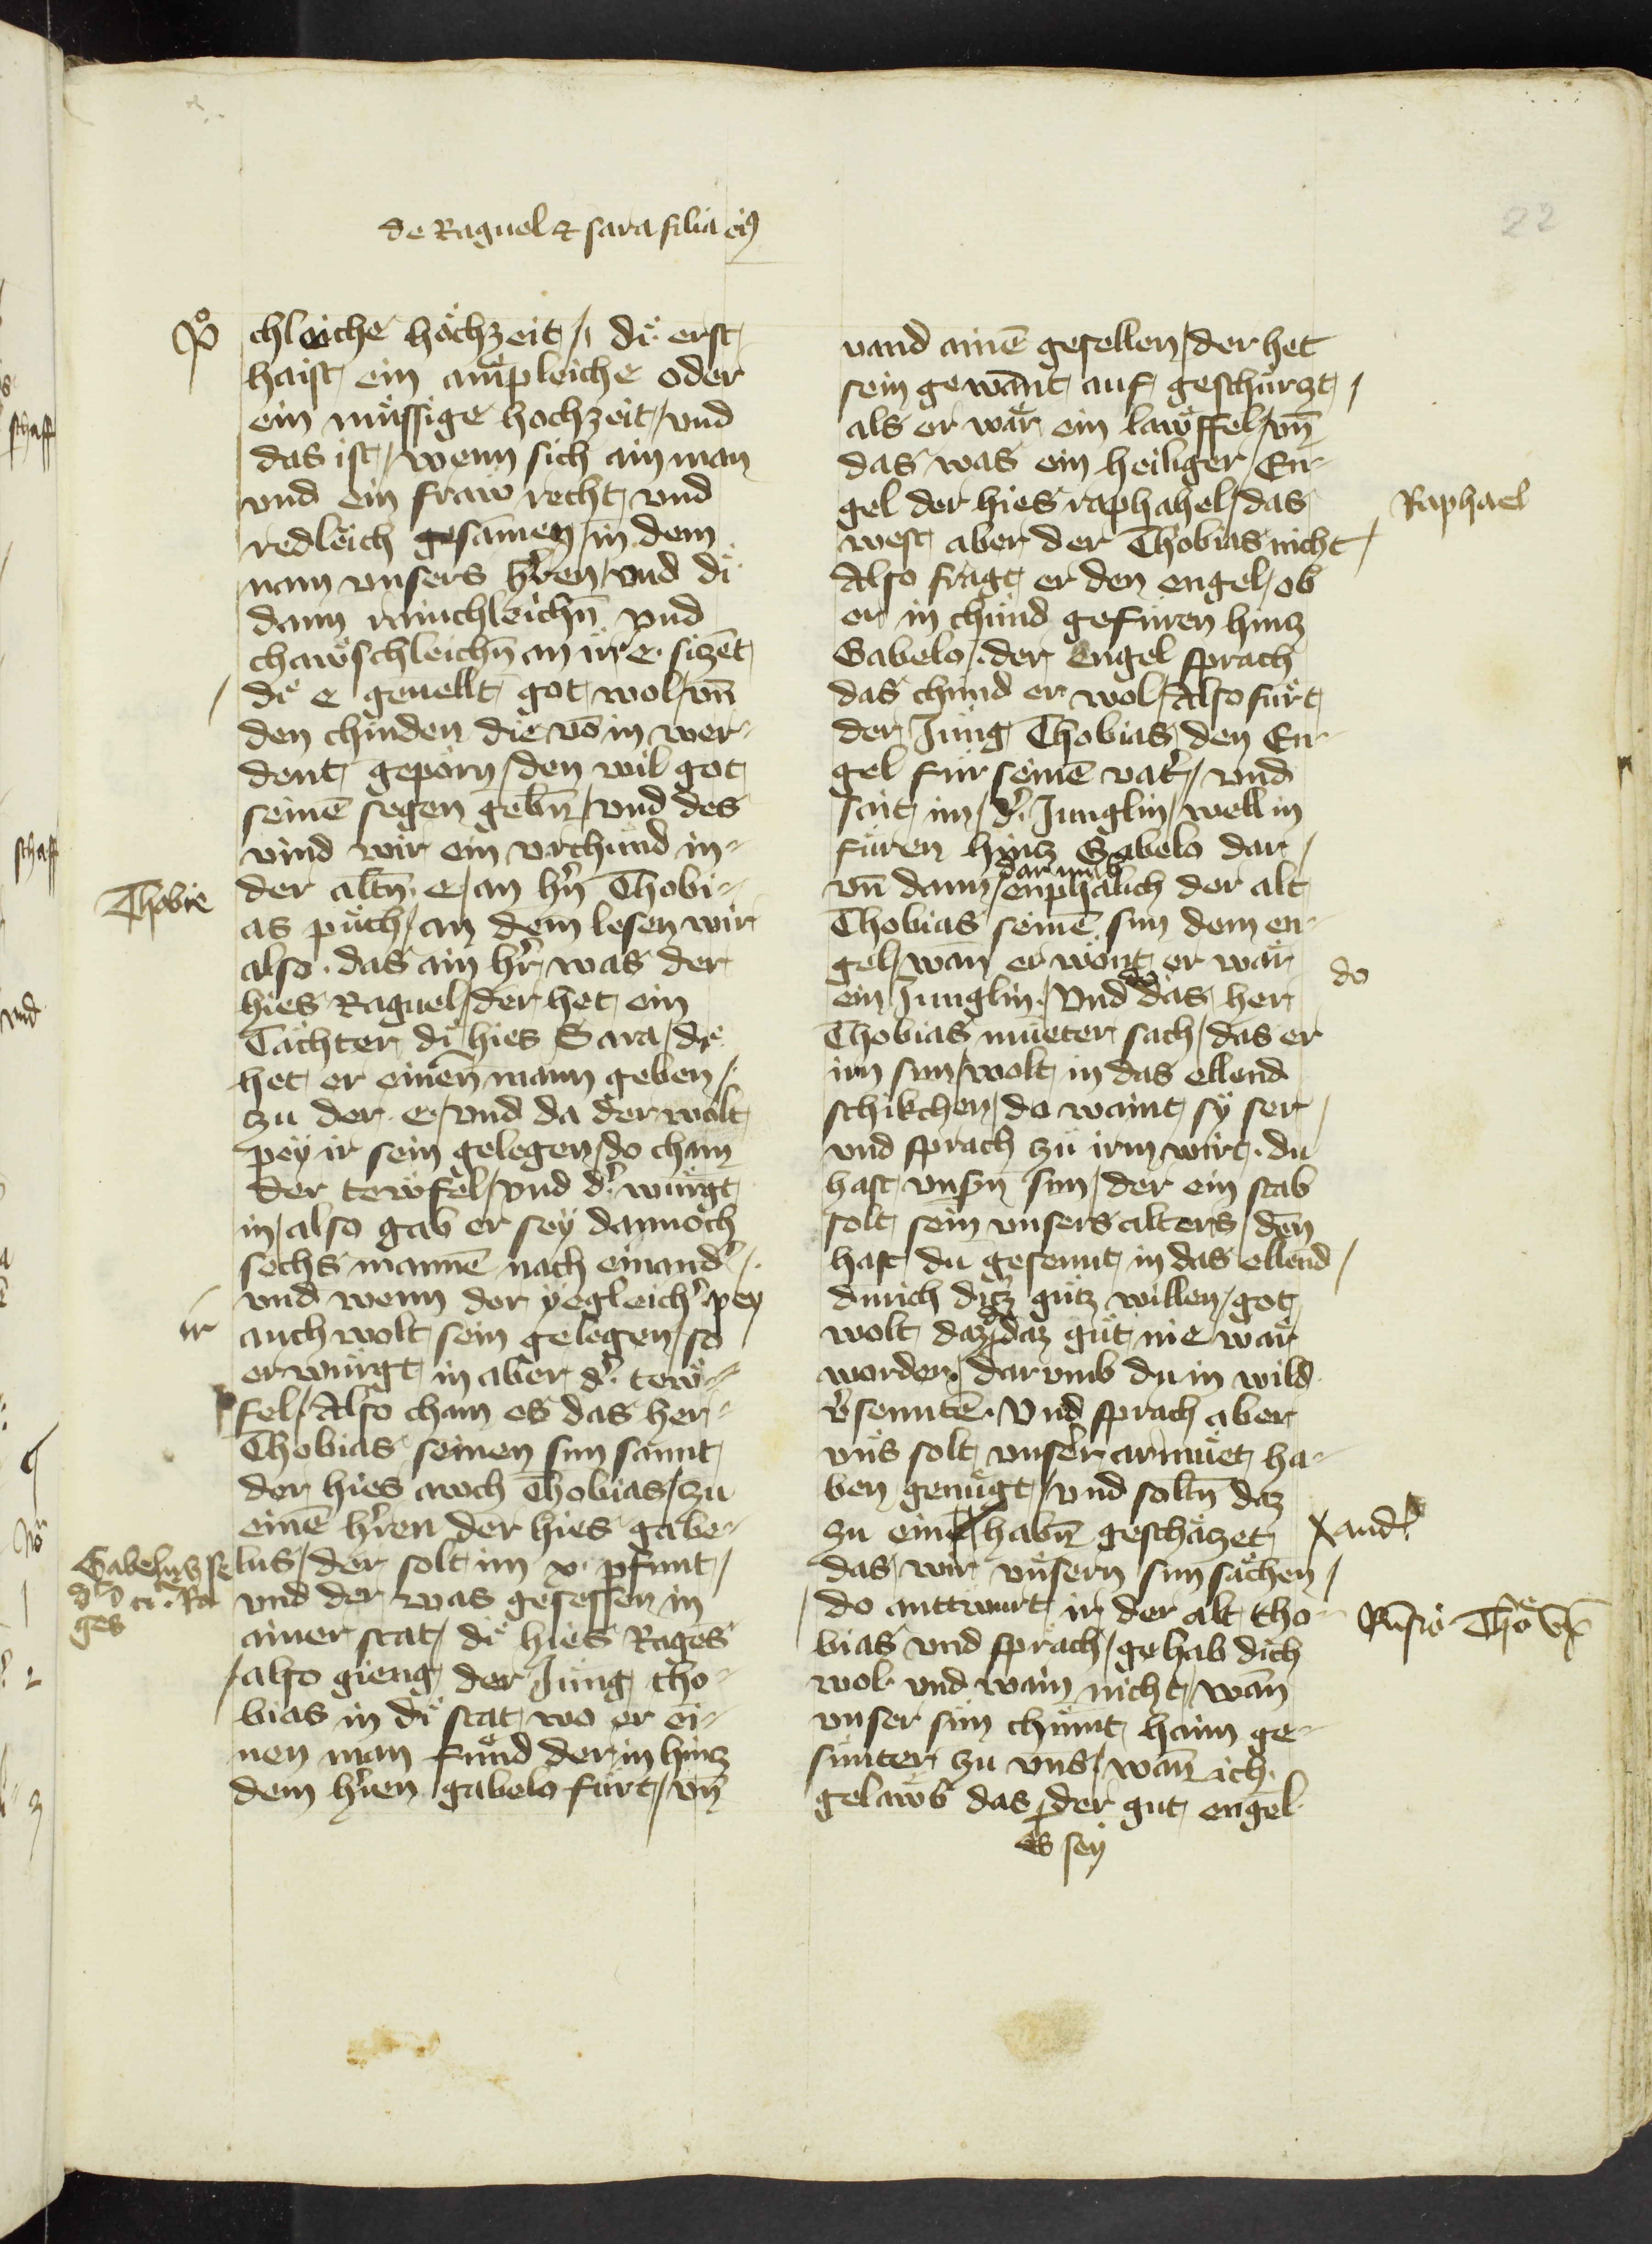 de Raguel & sara filia eiꝰ
22
chleiche hochzeit / di erst
haist ein ampleiche oder
ein mu̎ssige hochzeit / vnd
das ist / wenn sich ain man
vnd ein fraw recht vnd
redleich gesamen / in dem
nam vnsers hr̄en / vnd di
dann rainchleichn̄ vnd
chawschleichn̄ an ir e. sizēt
di e geuellt got wol / vn̄
den chinden die vō in wer-
dent geporn / den wil got
seinē segen gebn̄ / vnd des
vind wir ein vrchund in-
der altn̄ e / an hn̄ Thobi-
as puch / an dem lesen wir
also . das ain hr̄ was der
hies Raguel / der het ein
Tachter di hies Sara / di
het er einen mann geben /
zu der e / vnd da der wolt
pey ir sein gelegen / do cham
der tewfel / vnd d' wurgt
in / also gab er sey dannoch
sechs mannē nach einand' /
vnd wenn der yegleich' pey
auch wolt sein gelegen / so
erwurgt in aber d' tew-
fel / Also cham es das her-
Thobias seinen sun sannt
der hies auch Thobias / zu
einē hr̄en der hies gabe-
lus / der solt im x. pfunt /
vnd der was gesessen in
ainer stat / di hies Rages
/ also gieng der Jung tho-
bias in di stat wo er ei-
nen man fund der in hinz
dem hr̄en gabelo fu̎rt / vn̄
Thobie
ir
Gabelus se
ges
vand ainē gesellen / der het
sein gewant auf geschurzt /
als er wa̎r ein law̎ffel / vn̄
das was ein heiliger / En-
gel der hies raphahel / das
west aber der Thobias nicht /
Also fragt er den engel / ob
er in chund gefu̎ren hinz
Gabelo / . der Engel sprach
das chund er wol / Also furt
der Jung Thobias den En-
gel fur seinē vat' / vnd
sait im / d' Junglin / well in
fu̎ren hinz Gabelo dar /
dar umb
vn̄ dann / enphalich der alt
Thobias seinē sun dem en-
gel / wan er wont er wa̎r
ein Junglin . Vnd do das her
Thobias mueter sach / das er
irn sun / wolt in das ellend
schikchen / do waint sy ser /
vnd sprach zu irm wirt . du
hast vnsn̄ sun / der ein stab
solt sein vnsers alters / den
hast du gesennt in das ellend /
durich ditz gu̎tz willen / got
wolt daz daz gu̎t nie wa̎r
worden / dar vmb du in wild
v'sennten . Vnd sprach aber
vns solt vnser armu̎et ha-
ben genu̎gt / vnd soltn̄ daz
zu einē habn̄ gescha̎tzet
das wir vnsern sun sa̎chen /
do anttwurt ir der alt tho-
bias vnd sprach / gehab dich
wol vnd wain nicht / wan
vnser sun chumt haim ge-
sunter zu vns / wan ich
gelawb das der gut engel
es sey
Raphael
do